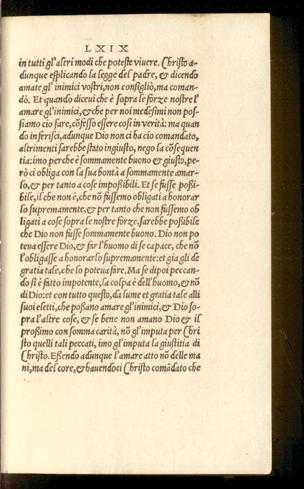 LXIX
in tutti gl'altri modi che poteste viuere. Christo a-
dunque esplicando la legge del padre, & dicendo
amate gl'inimici vostri, non consigliò, ma coman-
dò. Et quando diceui che è sopra le forze nostre l'
amare gl'inimici, & che per noi medesimi non pos-
siamo cio fare, cõfesso essere cosi in verità: ma quan
do inferisci, adunque Dio non ci ha cio comandato,
altrimenti sarebbe stato ingiusto, nego la cõsequen
tia: imo perche è sommamente buono & giusto, pe-
rò ci obliga con la sua bontà a sommamente amar-
lo, & per tanto a cose impoßibili. Et se fusse poßi-
bile, il che non è, che nõ fussemo obligati a honorar
lo supremamente, & per tanto che non fussemo ob
ligati a cose sopra le nostre forze, sarebbe poßibile
che Dio non fusse sommamente buono. Dio non po
teua essere Dio, & far l'huomo di se capace, che nõ
l'obligasse a honorarlo supremamente: et gia gli de
gratia tale, che lo poteua fare. Ma se dipoi peccan-
do si è fatto impotente, la colpa è dell'huomo, & nõ
di Dio: et con tutto questo, da lume et gratia tale alli
suoi eletti, che poßano amare gl'inimici, & Dio so-
pra l'altre cose, & se bene non amano Dio & il
proßimo con somma carità, nõ gl'imputa per Chri
sto quelli tali peccati, imo gl'imputa la giustitia di
Christo. Eßendo adunque l'amare atto nõ delle ma
ni, ma del core, & hauendoci Christo comãdato che